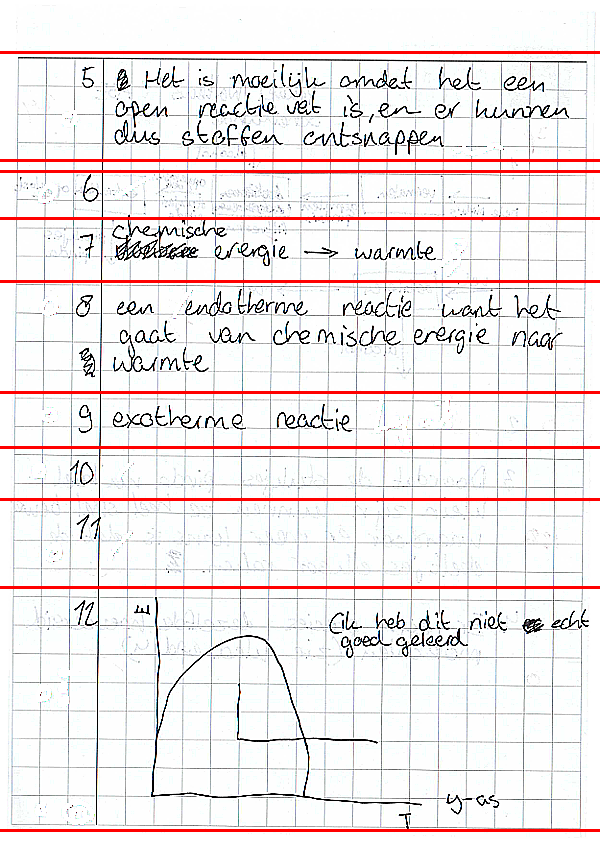 5 Het is moeilijk omdat het een
open reactie vat is, en er kunnen
dus stoffen ontsnappen
6
7 chemische
energie → warmte
8 een endotherme reactie want het
gaat van chemische energie naar
warmte
9 exotherme reactie
10
11
12 E
(ik heb dit niet echt
goed geleerd
y-as
T